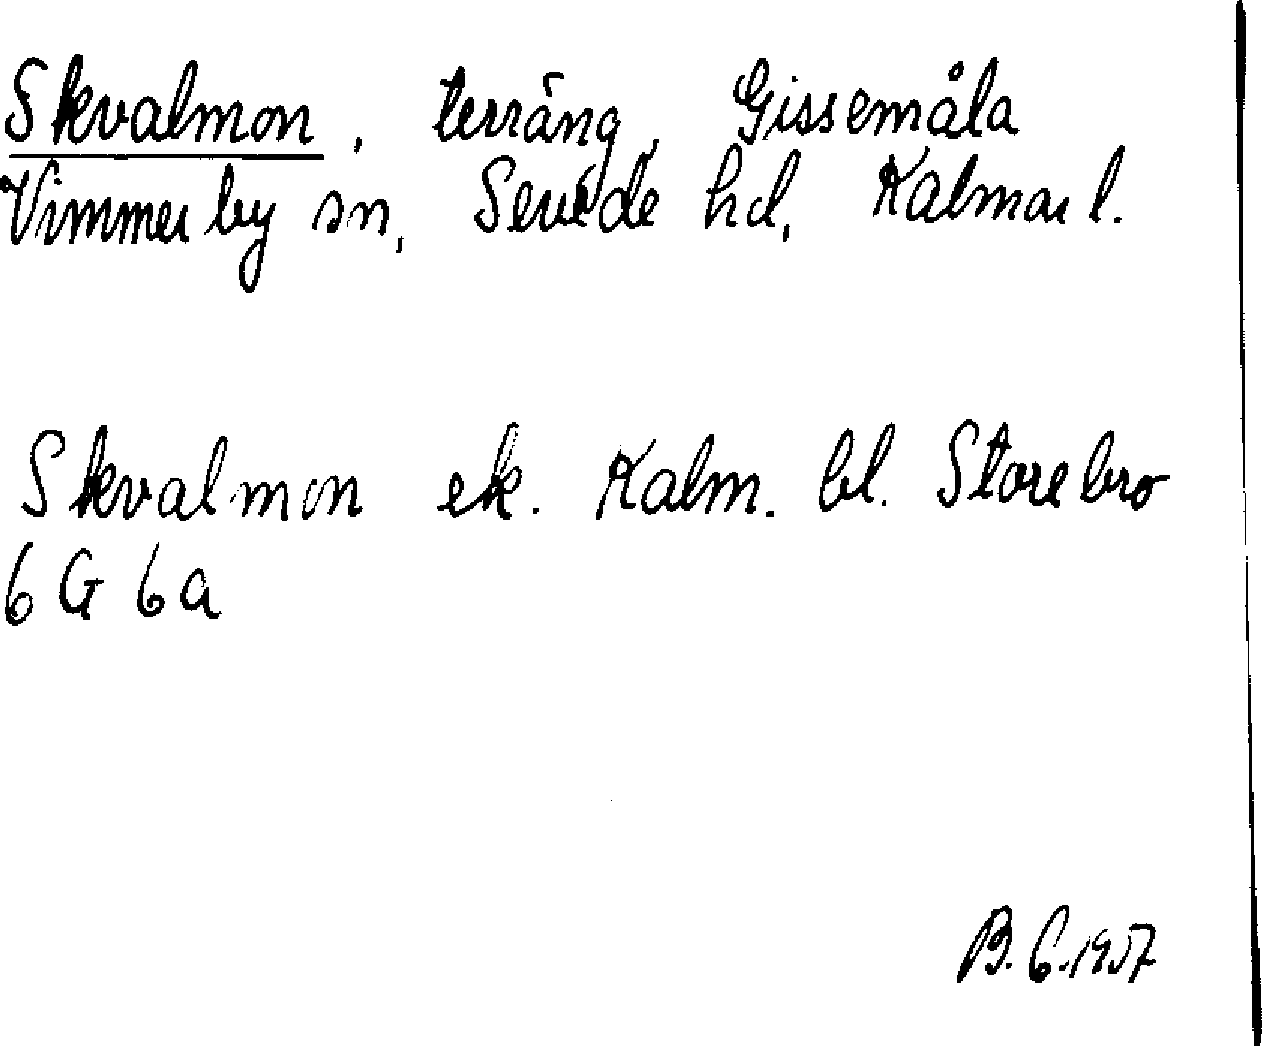 Skvalmon, terräng, Gissemåla
Vimmerby sn, Sevede hd, Kalmar l.
Skvalmon ek. Kalm. bl. Storebro
6 G 6a
B. G. 1957